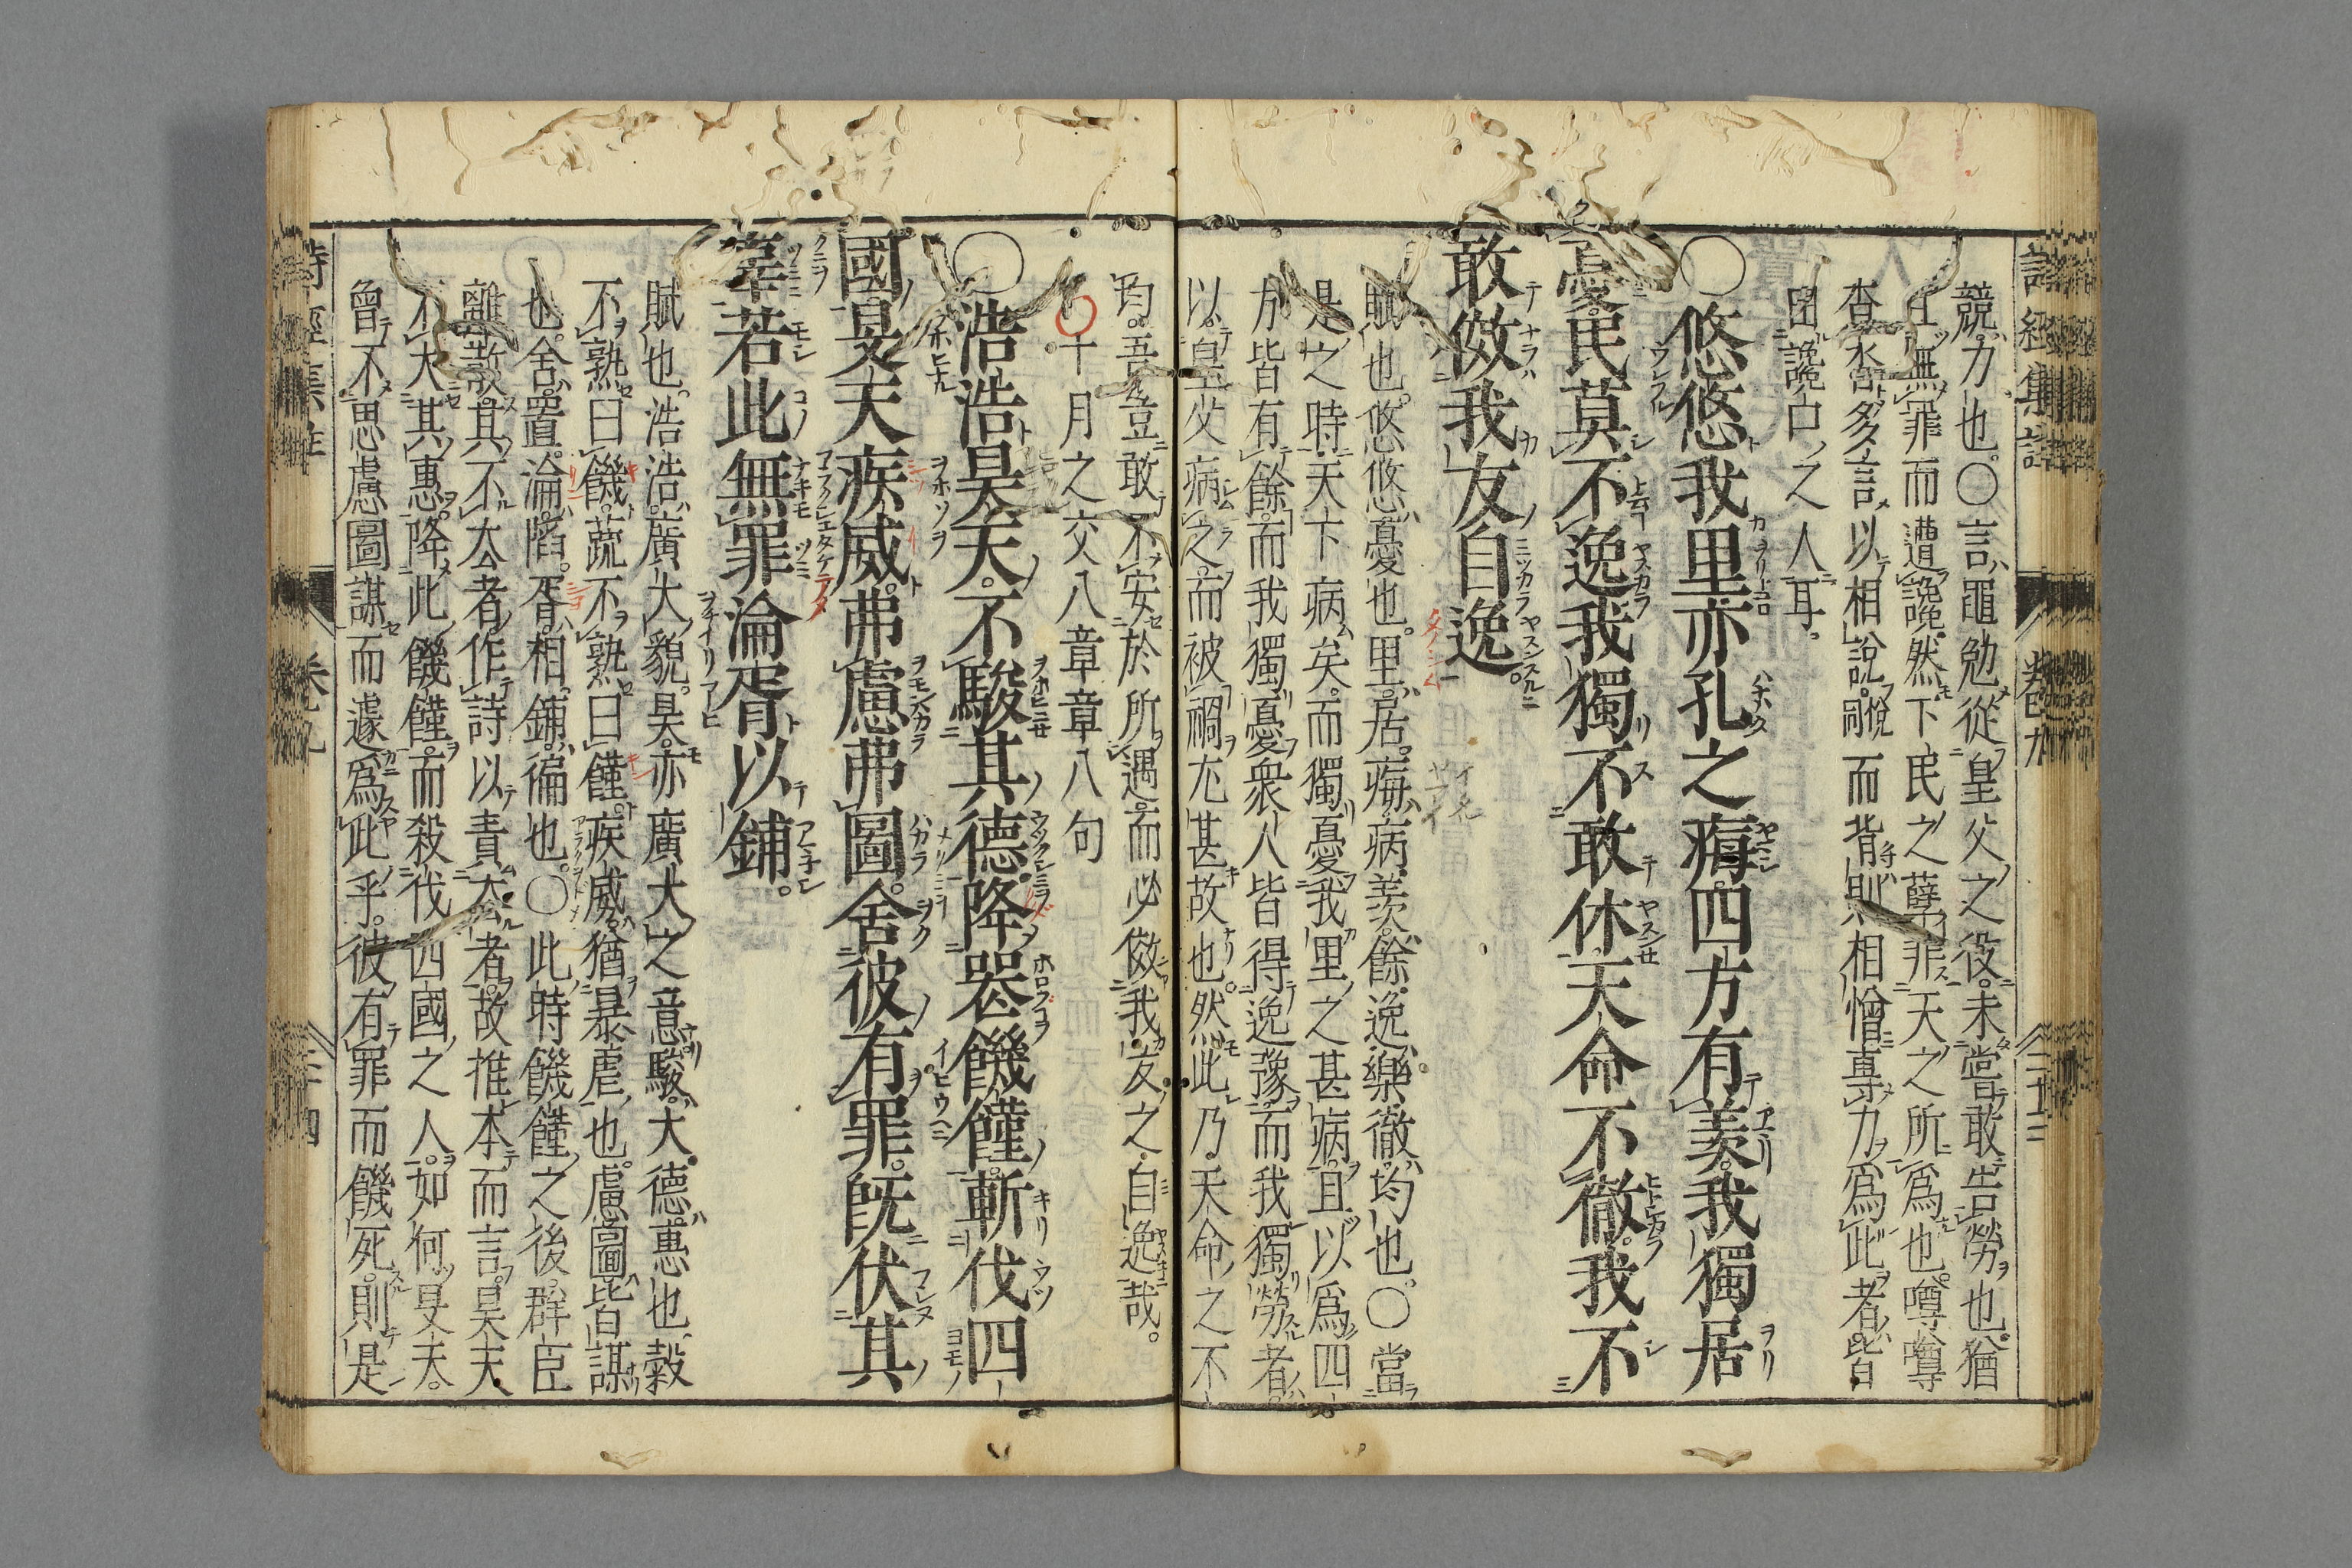 詩經集註 卷九 二十三
競力也○言黽勉從皇父之役未嘗敢告勞也猶
且無罪而遭讒然下民之孽非天之所爲也噂噂
沓沓多言以相說而背則相憎專力爲此者皆
由讒口之人耳
○悠悠我里亦孔之痗四方有羨我獨居
憂民莫不逸我獨不敢休天命不徹我不
敢傚我友自逸
賦也悠悠憂也里居痗病羨餘逸樂徹均也○當
是之時天下病矣而獨憂我里之甚病且以爲四
方皆有餘而我獨憂衆人皆得逸豫而我獨勞者
以皇父病之而被禍尤甚故也然此乃天命之不
均吾豈敢不安於所遇而必傚我友之自逸哉
十月之交八章章八句
○浩浩昊天不駿其德降喪饑饉斬伐四
國旻天疾威弗慮弗圖舍彼有罪旣伏其
辜若此無罪淪胥以鋪
賦也浩浩廣大貌昊亦廣大之意駿大德惠也穀
不熟曰饑蔬不熟曰饉疾威猶暴虐也慮圖皆謀
也舍置淪陷胥相鋪徧也○此時饑饉之後群臣
離散其不去者作詩以責去者故推本而言昊天
不大其惠降此饑饉而殺伐四國之人如何旻天
曾不思慮圖謀而遽爲此乎彼有罪而饑死則是
詩經集註 卷九 二十四